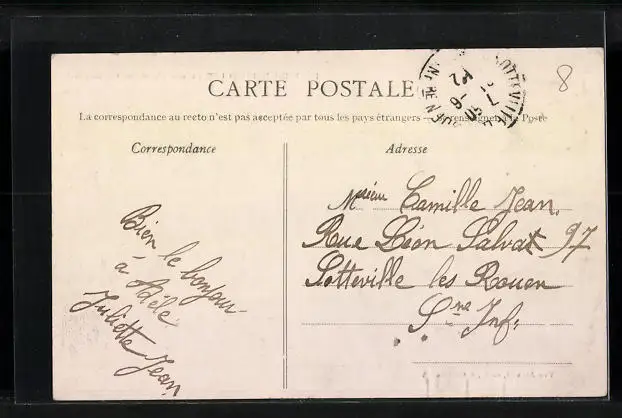 CARTE POSTALE
La correspondance au recto n'est pas acceptée par tous les pays étrangers — Se renseigner à la Poste
8
Correspondance
Adresse
Bien le bonjour
à Adèle
Juliette Jean
Msieur Camille Jean.
Rue Léon Salvat 97
Sotteville les Rouen
Sne Inf: